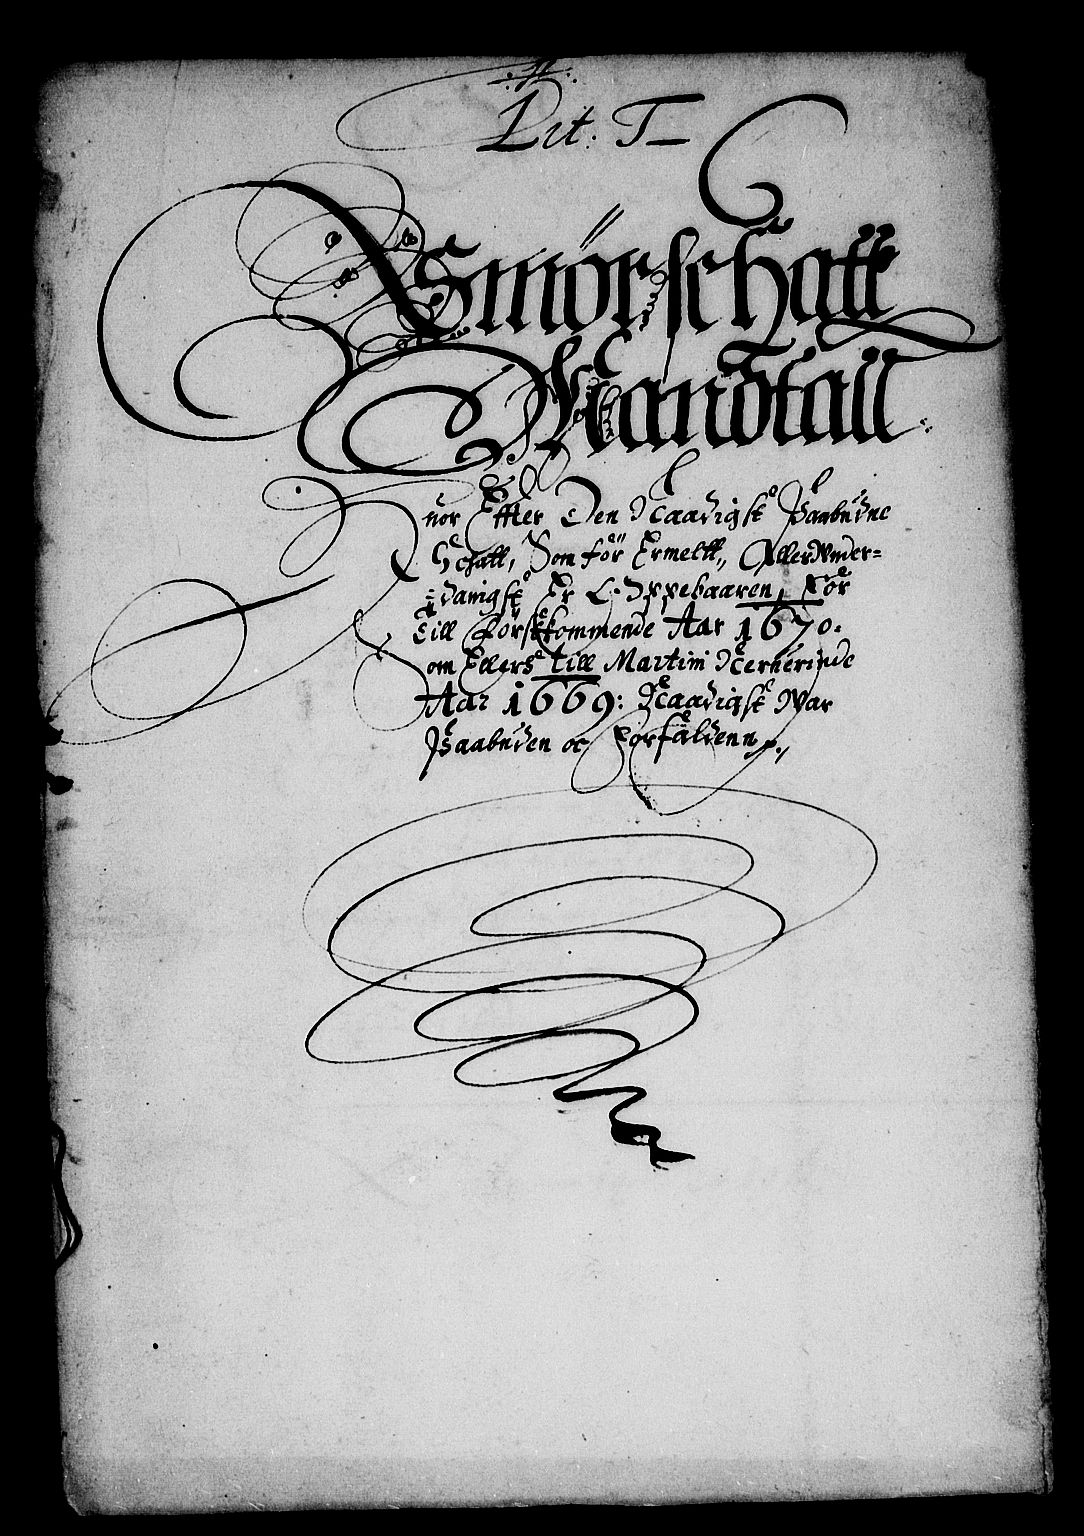 Lit: T
Smör schatt
Mandtall
Huor Effter Den Naadigst Paabudne
Schatt, Som för Ermeltt, AllerVnder=
=danigst Er Oppebaaren, För
till Förstkommende Aar 1670.
Som Ellers till Martini Nerverinde
Aar 1669: Naadigst War
Paabuden oc Forfalden